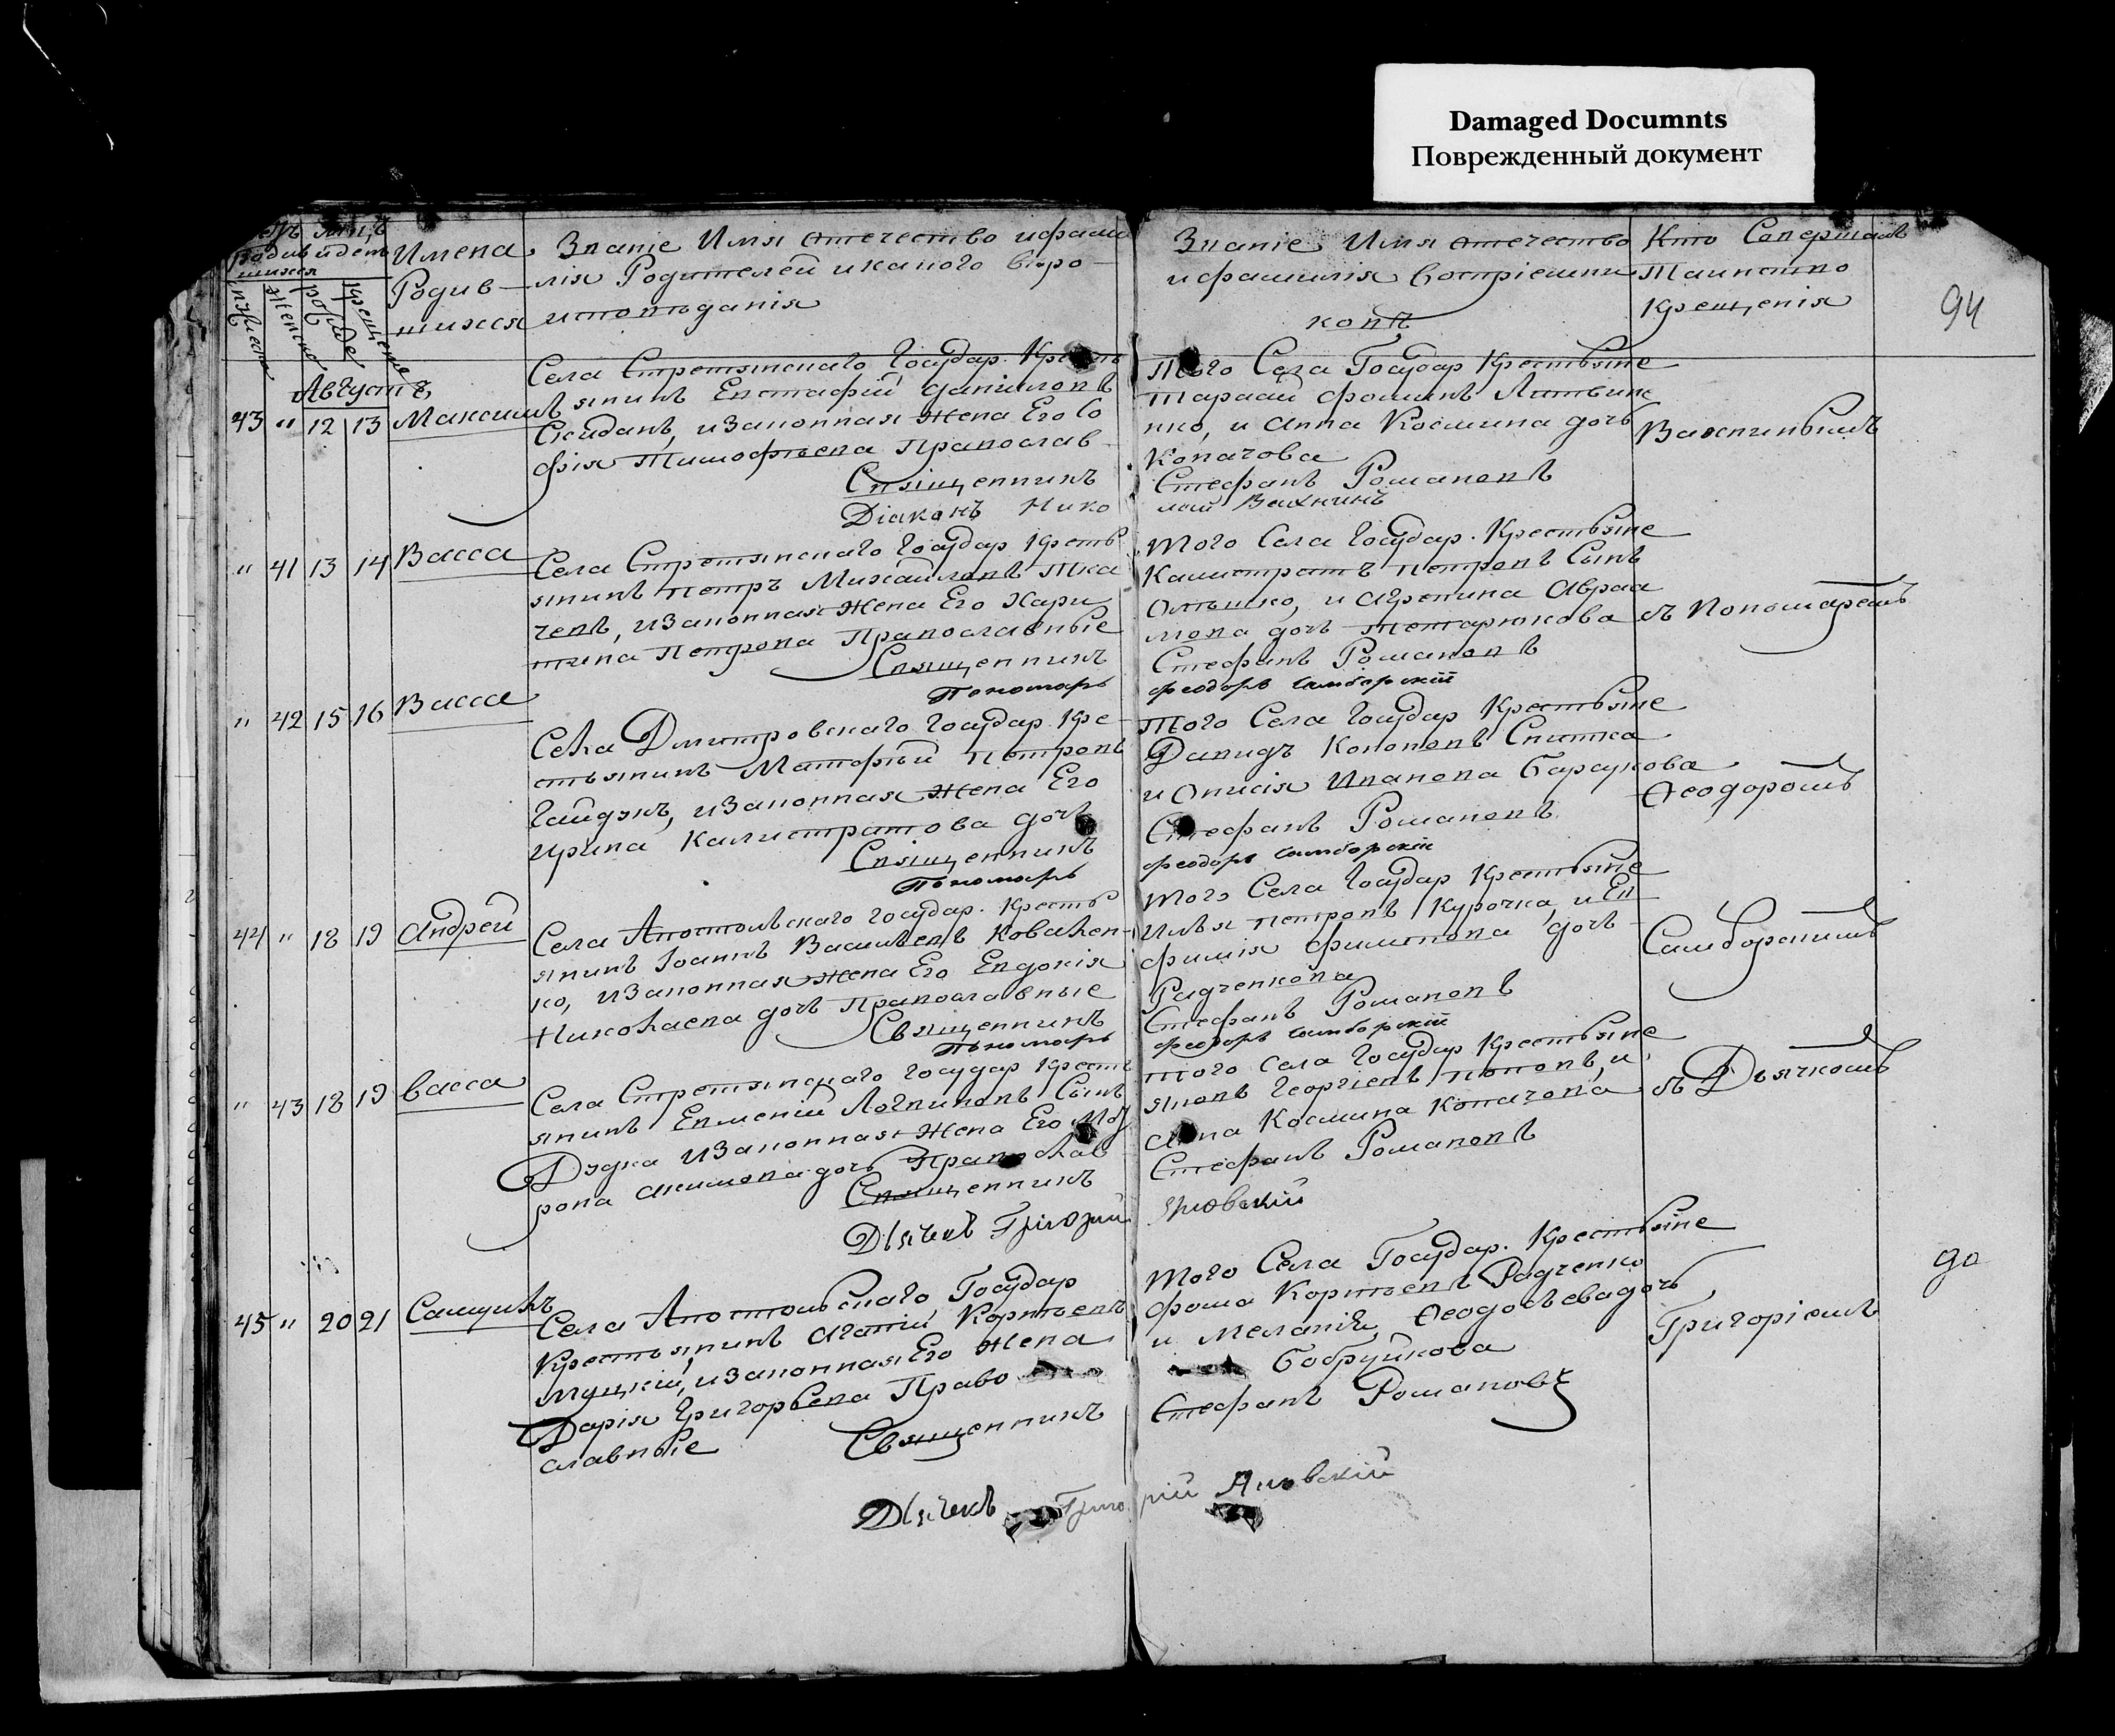 Damaged Documnts
Поврежденный документ
94
Имена
Родив-
шихся
Званіе Имя Отечество и фами
лія Родителей и какого веро-
исповѣданія
Званіе Имя Отечество
и фамилія Воспріемни
ковъ
Кто Совершалъ
Таинство
Крещенія
Августъ
43 " 12 13 Максимъ
Села Стретинскаго Государ. Кресть
янинъ Евстафій Даніиловъ
Скиданъ, и Законная Жена Его Со
фія Тимофѣева Православ
Священникъ
Діаконъ Нико
Того Села Государ Крестьяне
Тарасій Фоминъ Литвин
ко, и Анна Космина дочь
Копачова
Стефанъ Романовъ
лай Вахнинъ
Вахнинымъ
" 41 13 14 Васса
Села Стретинскаго Государ Кресть
янинъ Петръ Михайловъ Тка
ченъ, и Законная Жена Его Хари
тина Петрова Православные
Священникъ
Пономарь
Того Села Государ. Крестьяне
Калистратъ Петровъ Сынъ
и Агрепина Авраа
мова дочь
Стефанъ Романовъ
Феодоръ Самборскій
съ Пономаремъ
" 42 15 16 Васса
Села Дмитровскаго Государ. Кре-
стьянинъ Матфѣй Петровъ
Гайдукъ, и Законная Жена Его
Ирина Калистратова дочь
Священникъ
Пономарь
Того Села Государ Крестьяне
Давидъ Кононовъ Снитка
и Анисія Иванова Барсукова
Стефанъ Романовъ
Феодоръ Самборскій
Ѳеодоромъ
44 " 18 19 Андрей
Села Апостольскаго Государ. Кресть
янинъ Іоаннъ Васильевъ Ковален-
ко, и Законная Жена Его Евдокія
Николаева дочь Православные
Священникъ
Пономарь
Того Села Государ Крестьяне
Илья Петровъ Курочка, и Ев
фимія Филипова дочь
Радченкова
Стефанъ Романовъ
Феодоръ Самборскій
Самборскимъ
" 43 18 19 Васса
Села Стретинскаго Государ Кресть
янинъ Евменій Логвиновъ Сынъ
Дудка и Законная Жена Его Мав
рова Акимова дочь Православ
Священникъ
Дьячекъ Григорій
Того Села Государ Крестьяне
Яковъ Георгіевъ Поповъ, и
Анна Космина Копачова
Стефанъ Романовъ
Яновскій
съ Дьячкомъ
45 " 20 21 Самуилъ
Села Апостольскаго Государ
Крестьянинъ Агапій Корнѣевъ
Луцкій, и Законная Его Жена
Дарія Григорьева Право
славные
Священникъ
Дьячекъ Григо
Того Села Государ. Крестьяне
Фома Корнѣевъ Радченко
и Меланія Ѳеодосѣева дочь
Бобруйкова
Стефанъ Романовъ
рій Яновскій
Григоріемъ
90